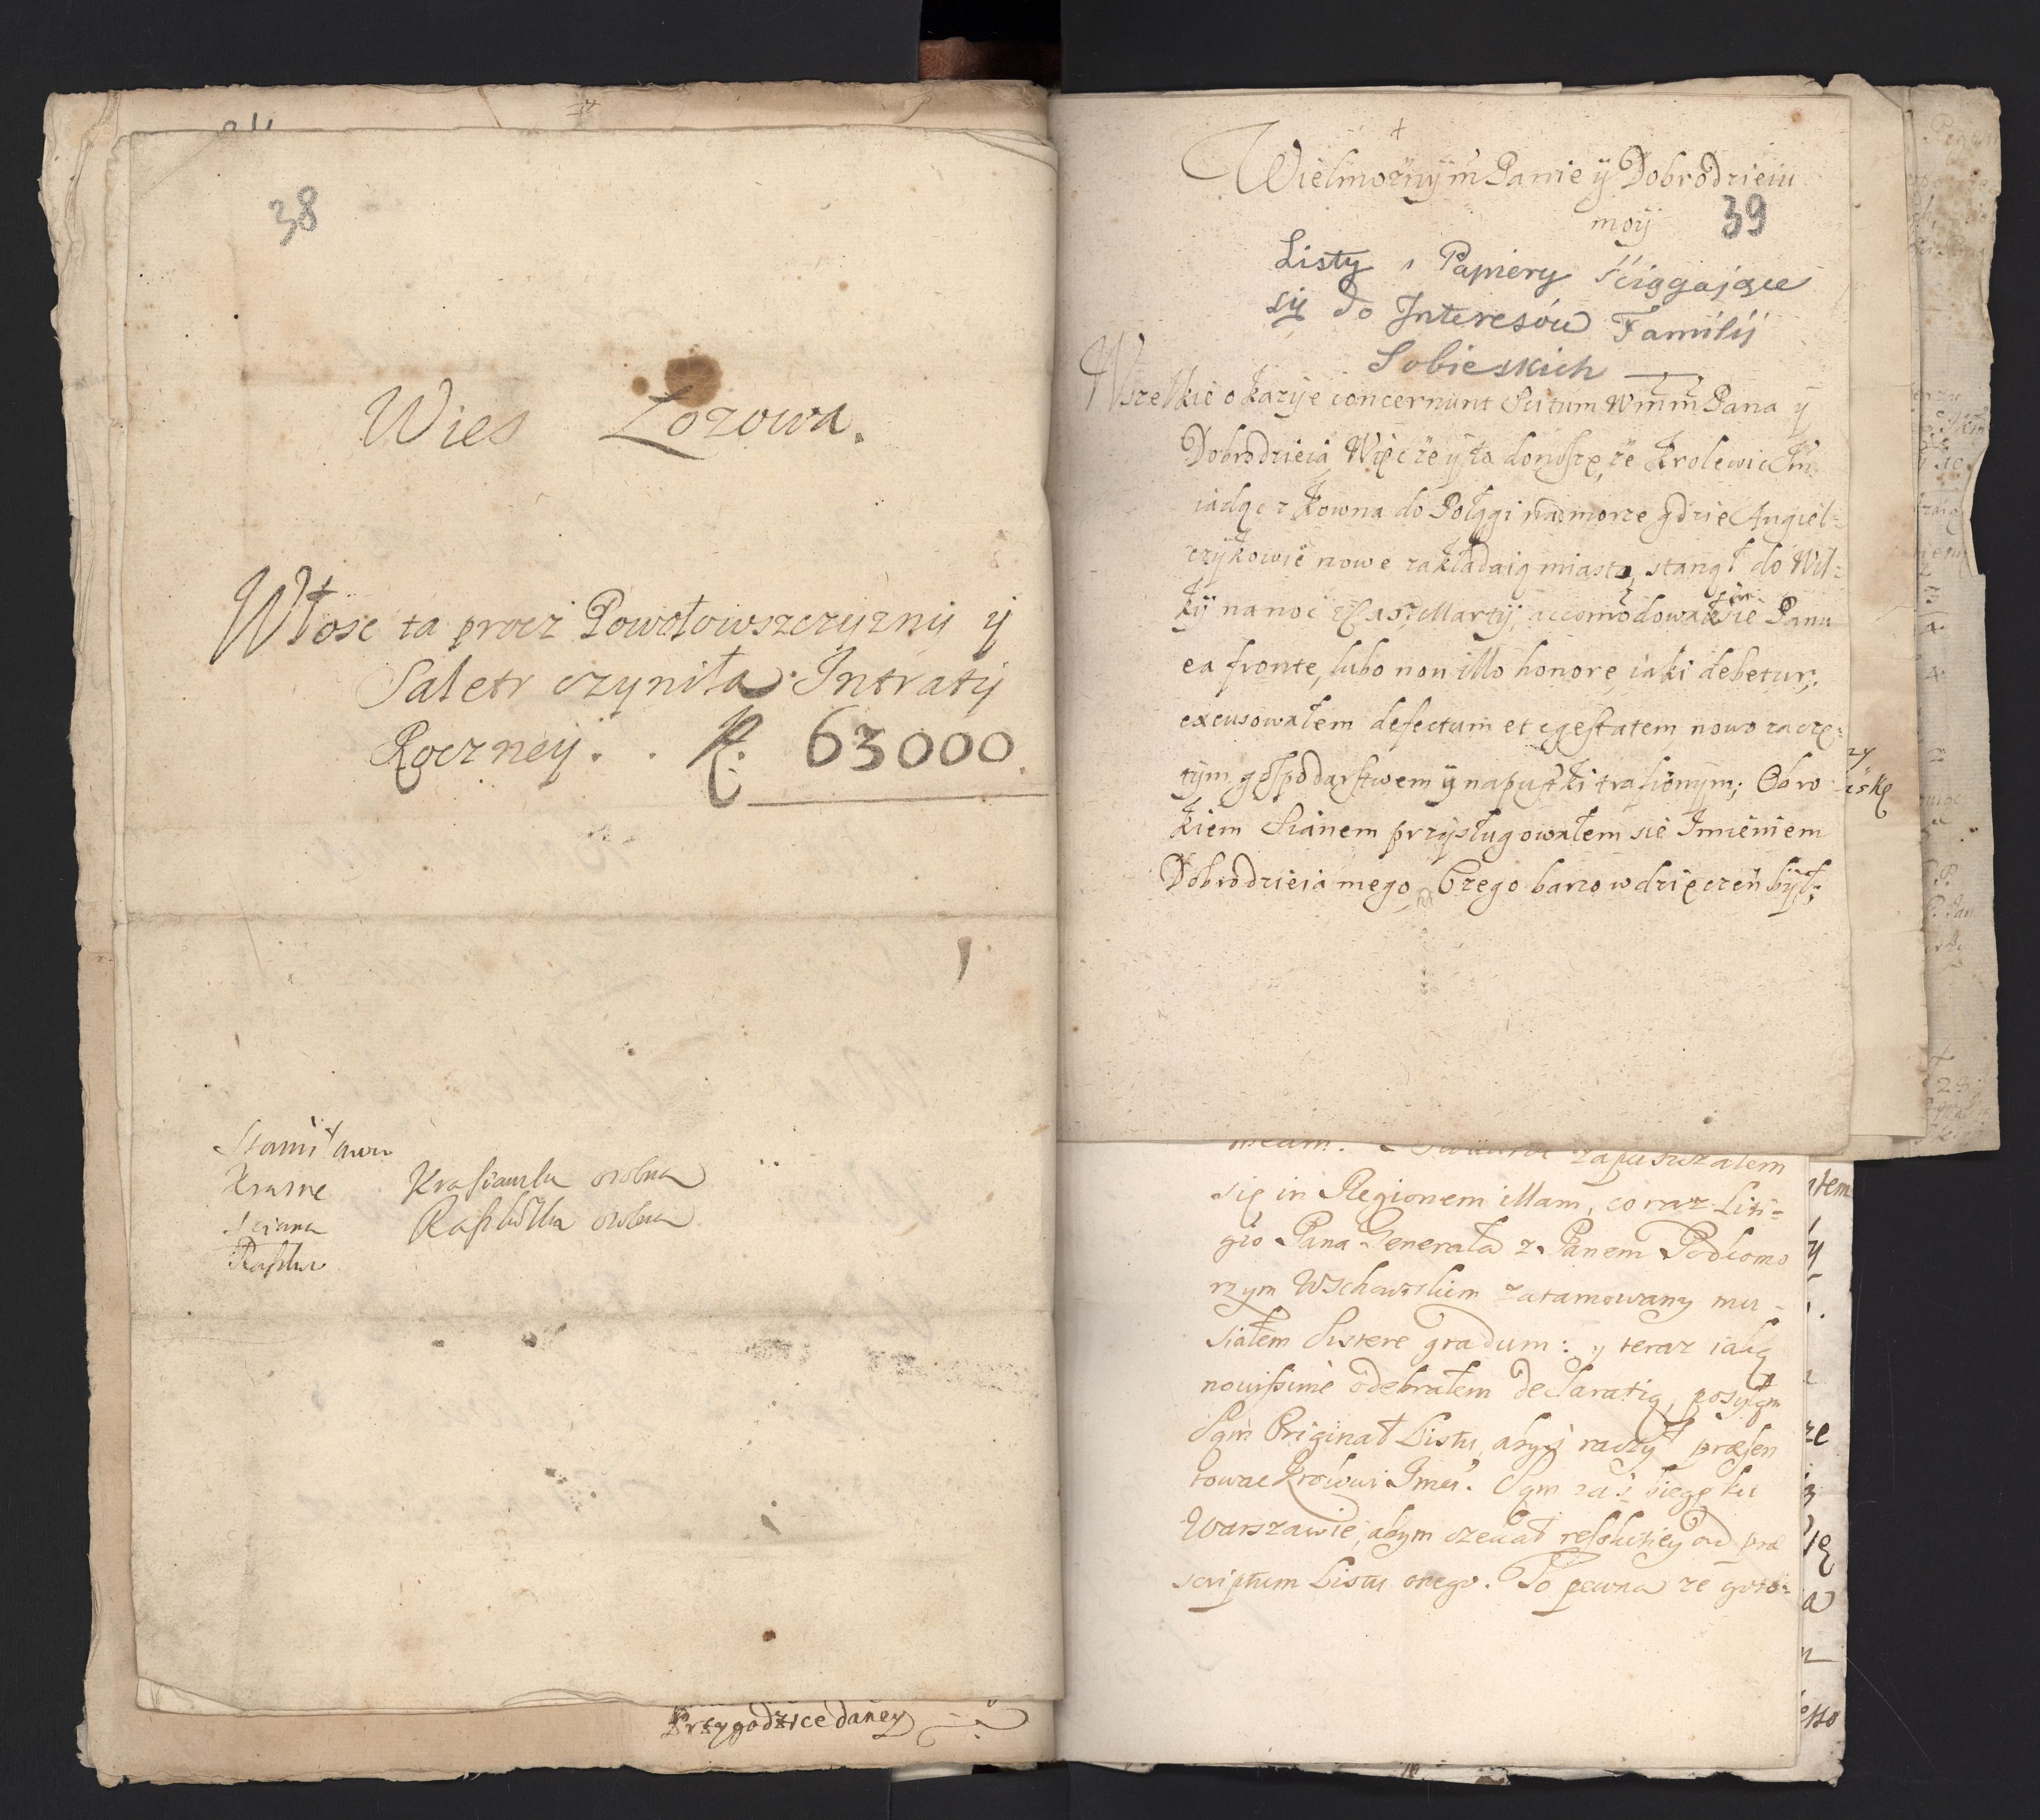 38
Wies Łozowa.
Włosc ta procz Powołowszczyzny y
Saletr czyniła Intraty
Roczney . . R. 63000.
Krasne
Sciana
osobna
osobna
Przygodzice daney
Wielmożnym Panie y Dobrodzieiu
moy
39
Listy i Papiery ściągające
się do Interesów Familij
Sobieskich
Wszelkie okazye concernunt Scitum Wmm Pana y
Dobrodzieia, Więc że y ta donoszę, że Krolewic Im
iadąc z Kowna do Połągi nad morze gdzie Angiel=
czykowie nowe zakładaią miasto, stanął do Wil=
ky na noc Martij, accomodowałem się Panu
ea fronte, lubo non illo honore iaki debetur;
excusowałem defectum et egestatem nowo zaczę=
tym gospodarstwem y na pustki trafionym; Obro
kiem Sianem przysługowałem się Imieniem
Dobrodzieia mego, Czego barzo wdzięczen był;
zapuszczałem
się in Regionem illam, co raz Liti=
gio Pana Generała z Panem Podkomo
rzym Wschowskim zatamowany mu=
siałem Sistere gradum: y teraz iaką
novissime odebrałem declaratią, posyłam
Sąm Originał Listu, abyś raczył præsen
towac Krolowi Jmci. Sąm zaś biegę ku
Warszawie, abym czekał resolutiey ad præ
scriptum Listu onego. To pewna że goto=